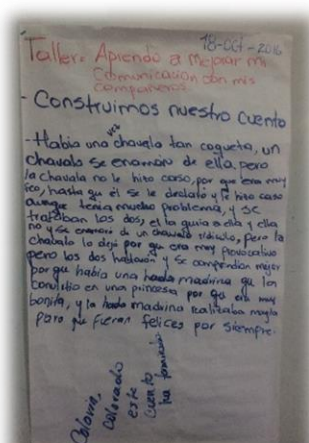 18-Oct-2016
Taller: Aprendo a mejorar mi
Comunicación con mis
compañeros
- Construimos nuestro cuento
- Había una vez chavala tan coqueta, un
chavalo se enamoró de ella pero
la chavala no le hizo caso, por que era muy
feo, hasta que él se le declaró y le hizo caso
aunque tenía mucho problema, y se
trataban los dos, el la quia a ella y ella
no y se enamoró de un chavalo ridículo, pero la
chabala lo dejó por que era muy provocativo
pero los dos hablaron y se comprendían mejor
por que había una hada madrina que los
convirtió en una princesa por que era muy
bonita, y la hada madrina realizaba magia
para que fueran felices por siempre.
Colorín,
Colorado
este
cuento
ha terminado